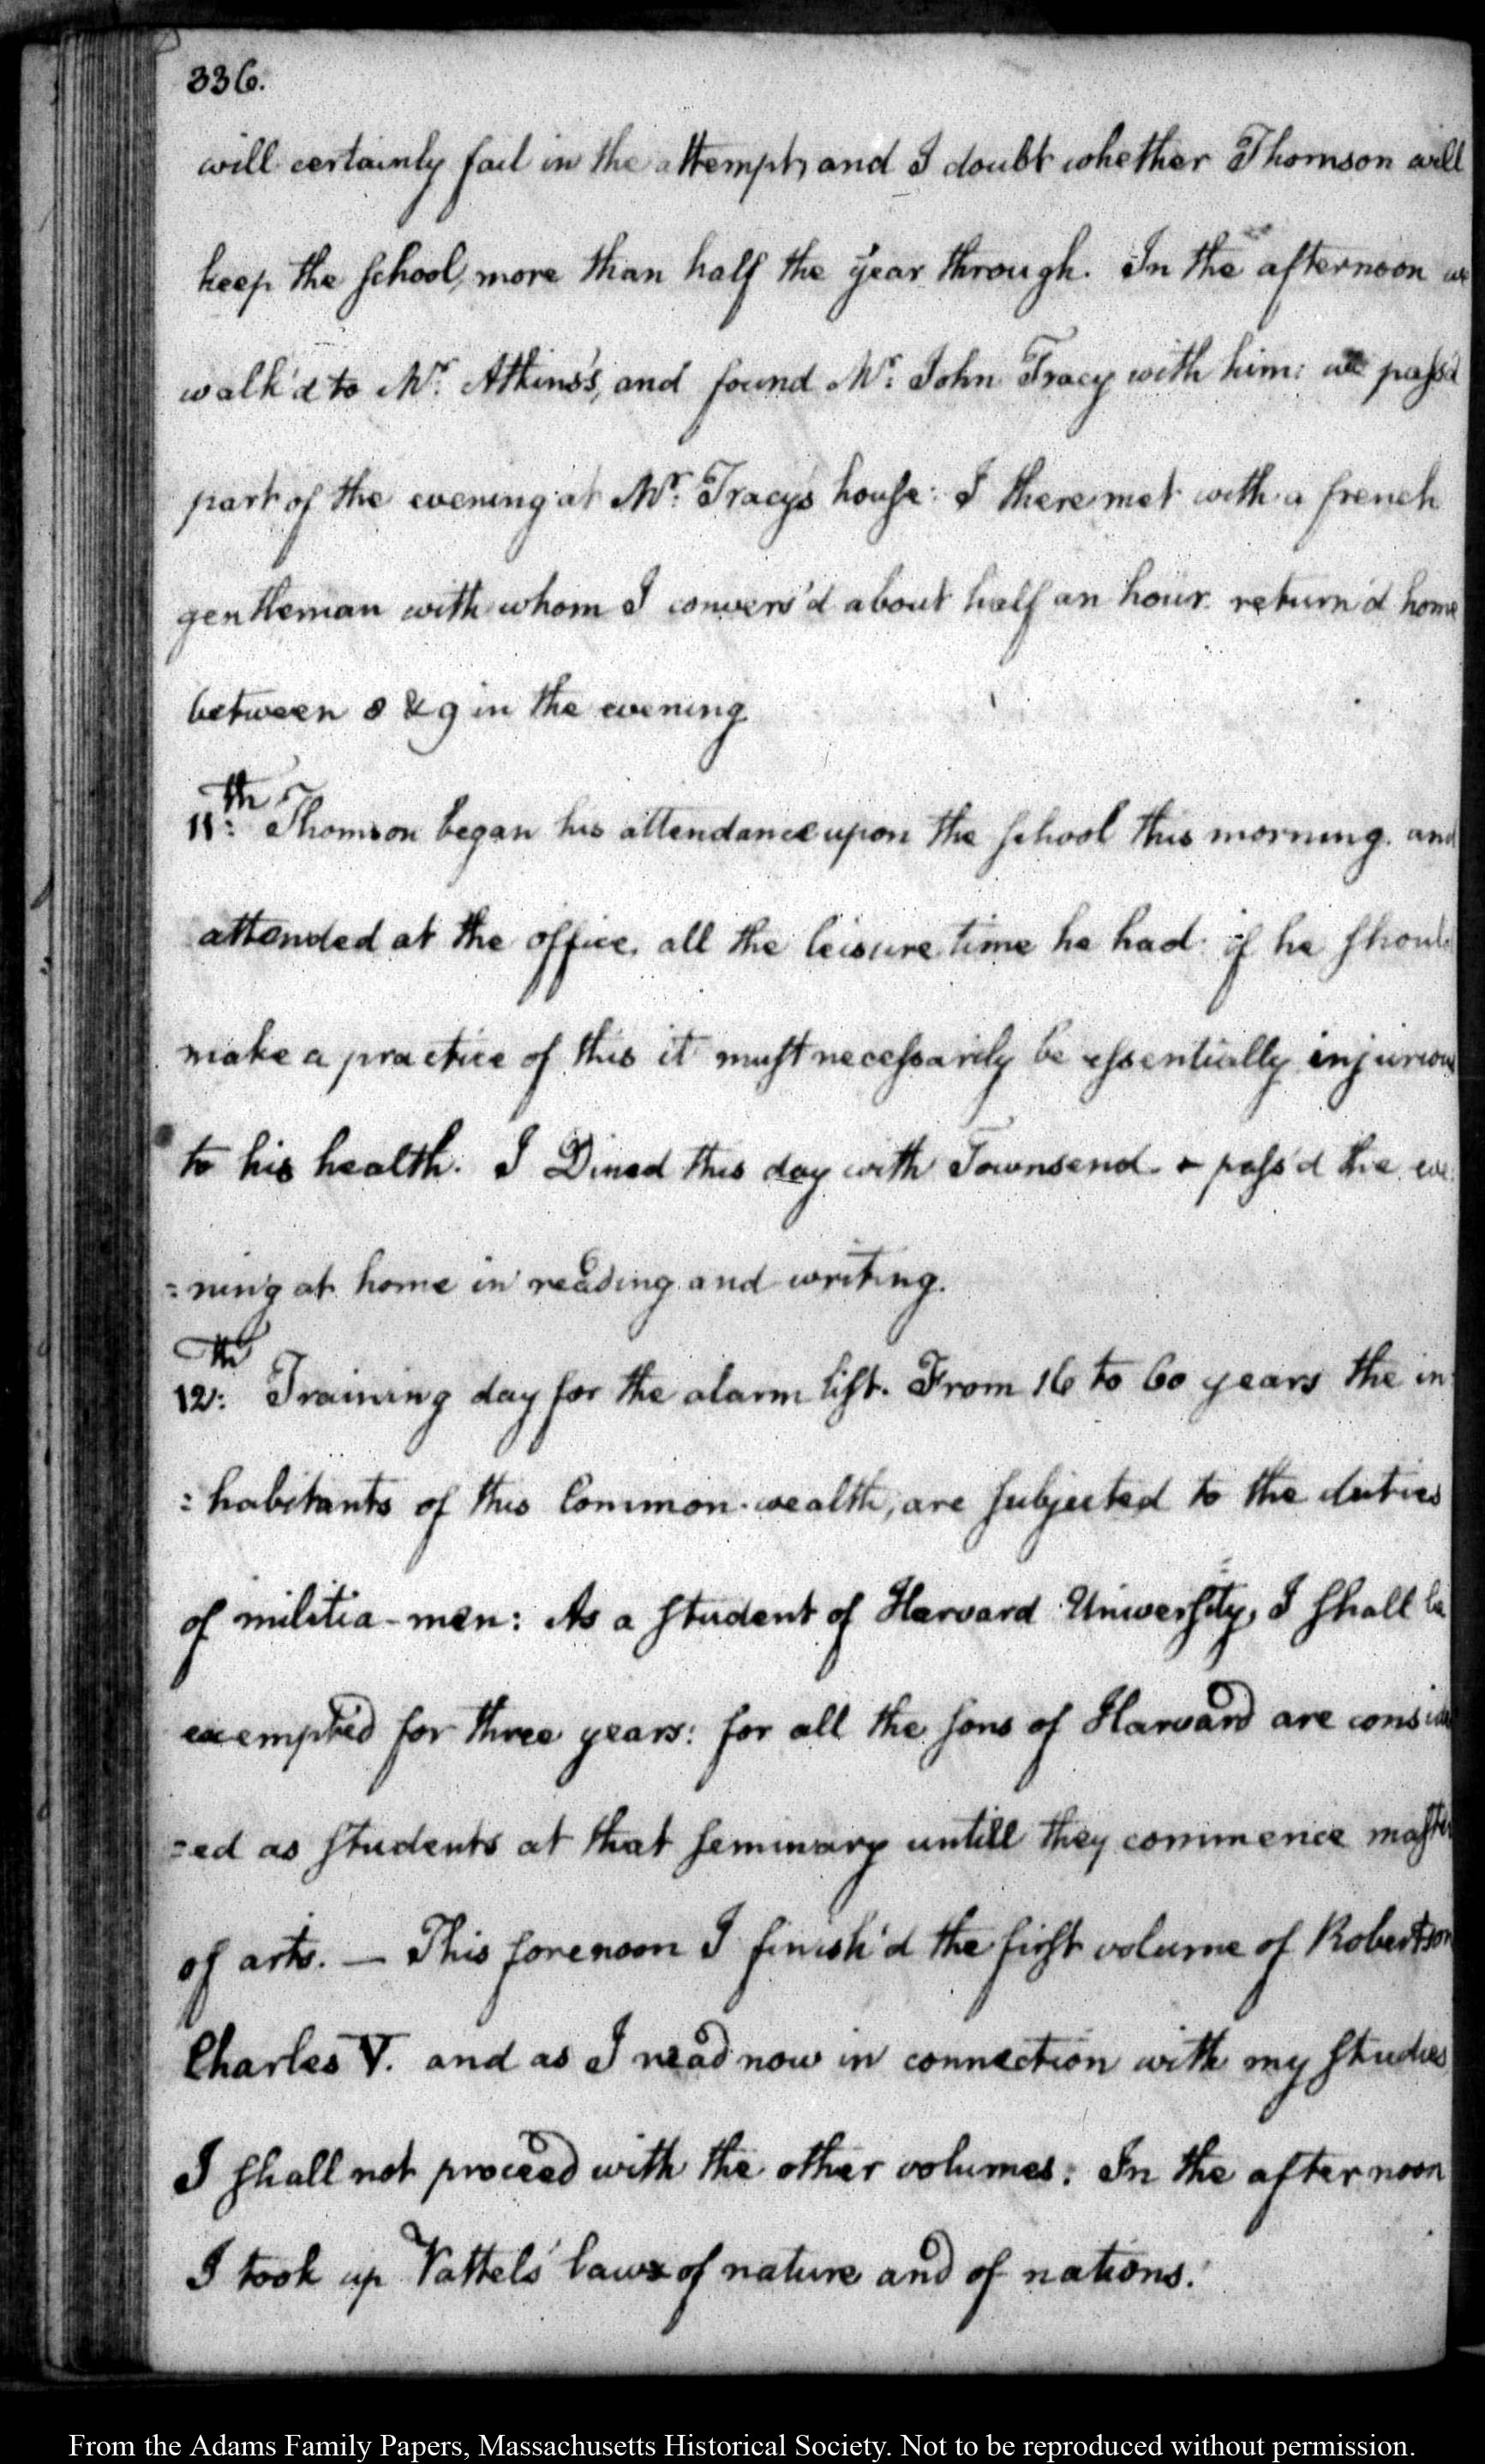 336.
will certainly fail in the attempt, and I doubt whether Thomson will
keep the school, more than half the year through. In the afternoon we
walk'd to Mr: Atkins's, and found Mr: John Tracy with him: we pass'd
part of the evening at Mr: Tracy's house: I there met with a french
gentleman with whom I convers'd about half an hour. return'd home
between 8 & 9 in the evening
11th: Thomson began his attendance upon the school this morning. and
attended at the office, all the leisure time he had: if he shoul
make a practice of this it must necessarily be essentially injuriou
to his health. I Dined this day with Townsend & pass'd the eve
=ning at home in reading and writing.
12th: Training day for the alarm list. From 16 to 60 years the in
=habitants of this Common-wealth, are subjected to the duties
of militia-men: As a student of Harvard University, I shall be
exempted for three years: for all the sons of Harvard are consider
=ed as students at that seminary untill they commence master
of arts. — This forenoon I finish'd the first volume of Robertson
Charles V. and as I read now in connection with my studies
I shall not proceed with the other volumes: In the afternoon
I took up Vattels' laws of nature and of nations.
From the Adams Family Papers, Massachusetts Historical Society. Not to be reproduced without permission.